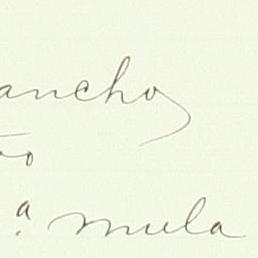 ancho
to
a mula